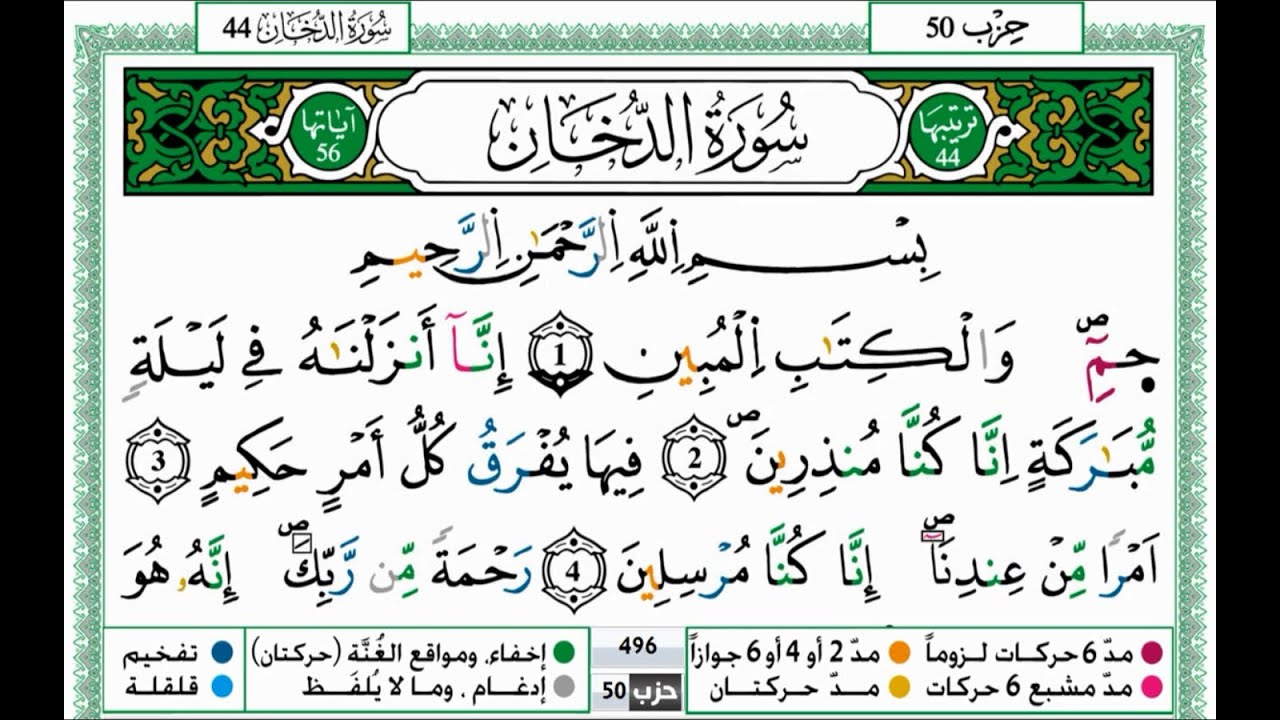 حِزْب 50
سُورَةُ الدُّخَانِ 44
تَرتِيبُهَا 44
سُورَةُ الدُّخَانِ
آيَاتُهَا 56
بِسْمِ اِ۬للَّهِ اِ۬لرَّحْمَٰنِ اِ۬لرَّحِيمِ
حمِٓۖ وَالْكِتَٰبِ اِ۬لْمُبِينِ 1 إِنَّآ أَنزَلْنَٰهُ فِي لَيْلَةٖ
مُّبَٰرَكَةٍ اِنَّا كُنَّا مُنذِرِينَۖ 2 فِيهَا يُفْرَقُ كُلُّ أَمْرٍ حَكِيمٍ 3
اَمْراٗ مِّنْ عِندِنَآۖ إِنَّا كُنَّا مُرْسِلِينَ 4 رَحْمَةٗ مِّن رَّبِّكَۖ إِنَّهُۥ هُوَ
مدّ 6 حركات لزوماً
مدّ 2 أو 4 أو 6 جوازاً
مدّ مشبع 6 حركات
مدّ حركتان
496
حزب 50
إخفاء، ومواقع الغُنَّة (حركتان)
تفخيم
إدغام، وما لا يُلفَظ
قلقلة